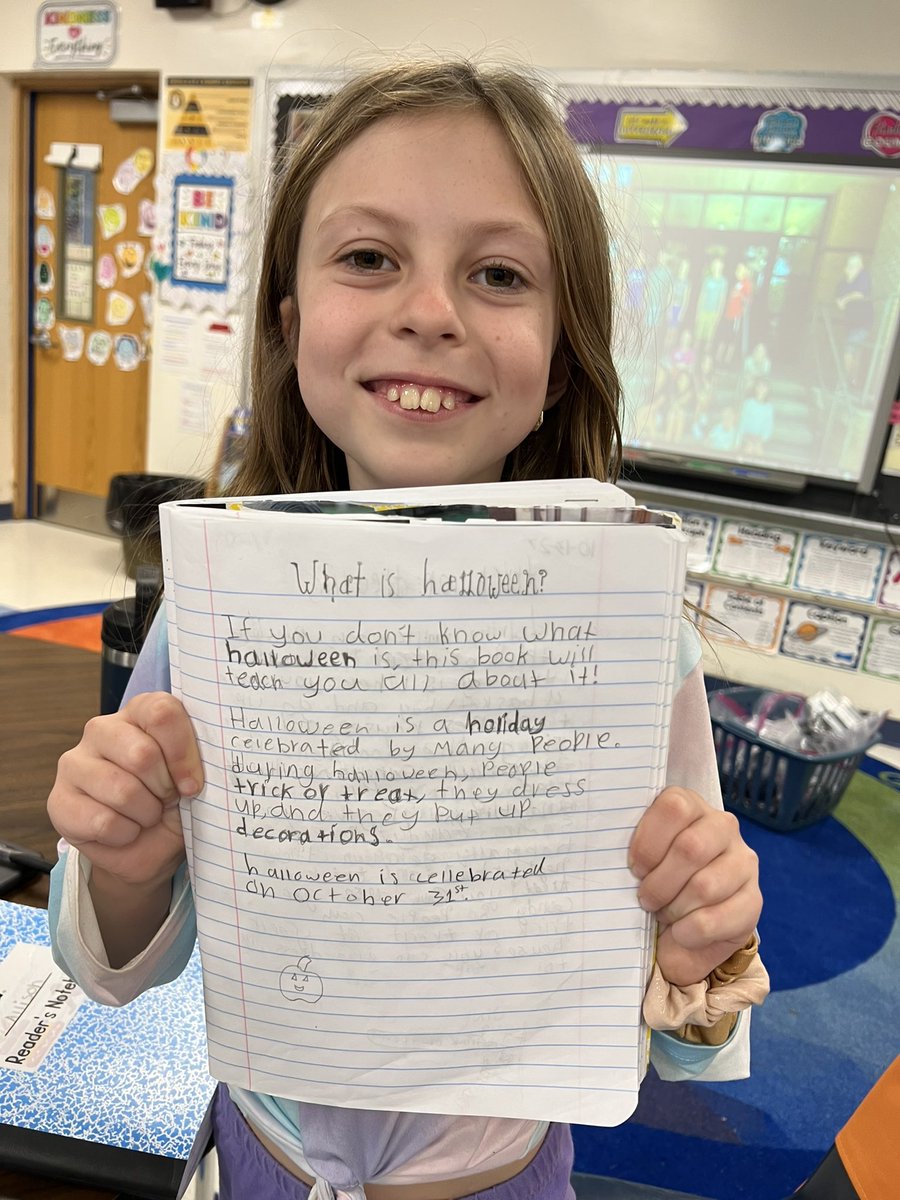 KINDNESS
Everything
BE
KIND
What is halloween?
If you don't know what
halloween is, this book will
teach you all about it!
Halloween is a holiday
celebrated by many people.
during halloween, people
trick or treat, they dress
up, and they put up
decorations.
halloween is cellebrated
on october 31st.
Heading
Keyword
Caption
Reader's Note